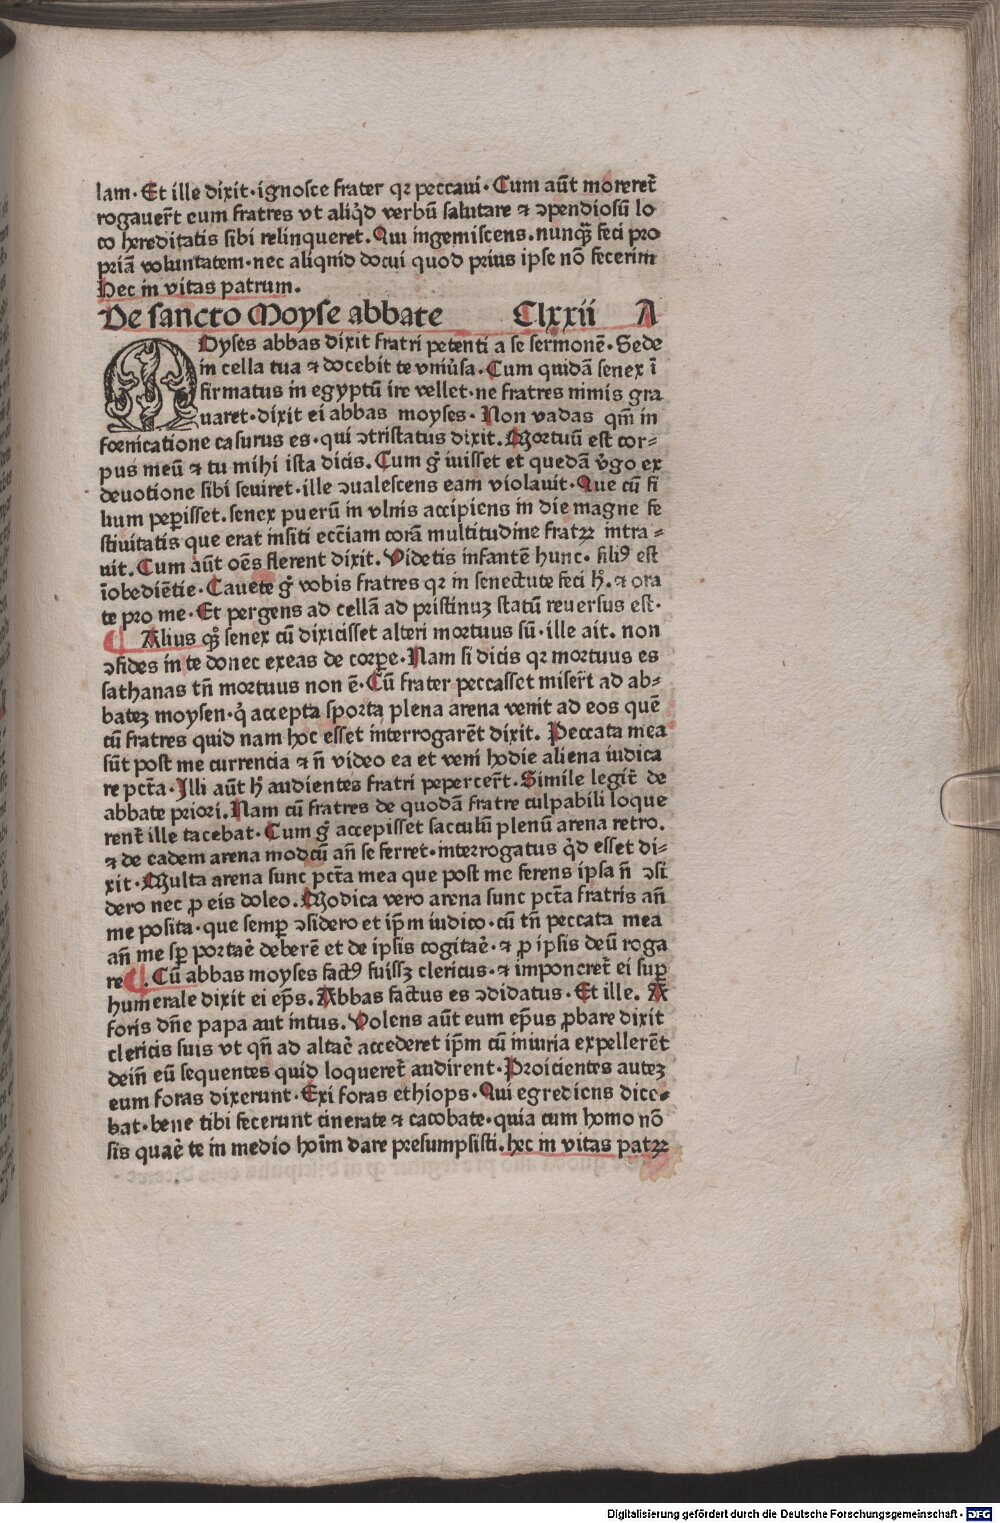 lam. Et ille dixit. ignosce frater qꝛ peccaui. Cum aūt moreret̄
rogauer̄t eum fratres vt aliq̇d verbū salutare ⁊ ↄpendiosū lo
co hereditatis sibi relinqueret. Qui ingemiscens. nunqȝ̄ feci pro
priā voluntatem. nec aliquid docui quod prius ipse nō fecerim
Hec in vitas patrum.
De sancto Moyse abbate Clxxii A
MOyses abbas dixit fratri petenti a se sermonē. Sede
in cella tua ⁊ docebit te vniu̇sa. Cum quidā senex ī
firmatus in egyptū ire vellet. ne fratres nimis gra
uaret. dixit ei abbas moyses. Non vadas qm̄ in
fornicatione casurus es. qui ↄtristatus dixit. Mortuū est cor⸗
pus meū ⁊ tu mihi ista dicis. Cum gͦ iuisset et quedā v̇go ex
deuotione sibi seuiret. ille ↄualescens eam violauit. Que cū fi
lium peꝑisset. senex puerū in vlnis accipiens in die magne fe
stiuitatis que erat insiti ecc̄iam corā multitudine fratꝝ intra⸗
uit. Cum aūt oēs flerent dixit. Videtis infantē hunc. filiꝰ est
īobediētie. Cauete gͦ vobis fratres qꝛ in senectute feci h̄. ⁊ ora
te pro me. Et pergens ad cellā ad pristinuȝ statū reuersus est.
¶ Alius qȝ̄ senex cū dixicisset alteri mortuus sū. ille ait. non
ↄfides in te donec exeas de corꝑe. Nam si dicis qꝛ mortuus es
sathanas tn̄ mortuus non ē. Cū frater peccasset miser̄t ad ab⸗
bateȝ moysen. q̇ accepta sporta plena arena venit ad eos quē
cū fratres quid nam hoc esset interrogarēt dixit. Peccata mea
sūt post me currencia ⁊ n̄ video ea et veni hodie aliena iudica
re pctā. Illi aūt h̄ audientes fratri pepercer̄t. Simile legit̄ de
abbate priori. Nam cū fratres de quodā fratre culpabili loque
rent̄ ille tacebat. Cum gͦ accepisset sacculū plenū arena retro.
⁊ de eadem arena modcū an̄ se ferret. interrogatus q̇d esset di⸗
xit. Multa arena sunc pctā mea que post me ferens ipsa n̄ ↄsi
dero nec ꝓ eis doleo. Modica vero arena sunc pctā fratris an̄
me posita. que semꝑ ↄsidero et ip̄m iudico. cū tn̄ peccata mea
an̄ me sꝑ portaē deberē et de ipsis cogitaē. ⁊ ꝓ ipsis deū roga
re ¶. Cū abbas moyses factꝰ fuissȝ clericus. ⁊ imponeret̄ ei suꝑ
humerale dixit ei ep̄s. Abbas factus es ↄdidatus. Et ille. A
foris dn̄e papa aut intus. Volens aūt eum ep̄us ꝓbare dixit
clericis suis vt qn̄ ad altaē accederet ip̄m cū iniuria expellerēt
dein̄ eū sequentes quid loqueret̄ audirent. Proicientes auteȝ
eum foras dixerunt. Exi foras ethiops. Qui egrediens dice⸗
bat. bene tibi fecerunt cinerate ⁊ cacobate. quia cum homo nō
sis quaē te in medio hoīm dare presumpsisti. hec in vitas patꝝ
Digitalisierung gefördert durch die Deutsche Forschungsgemeinschaft - DFG